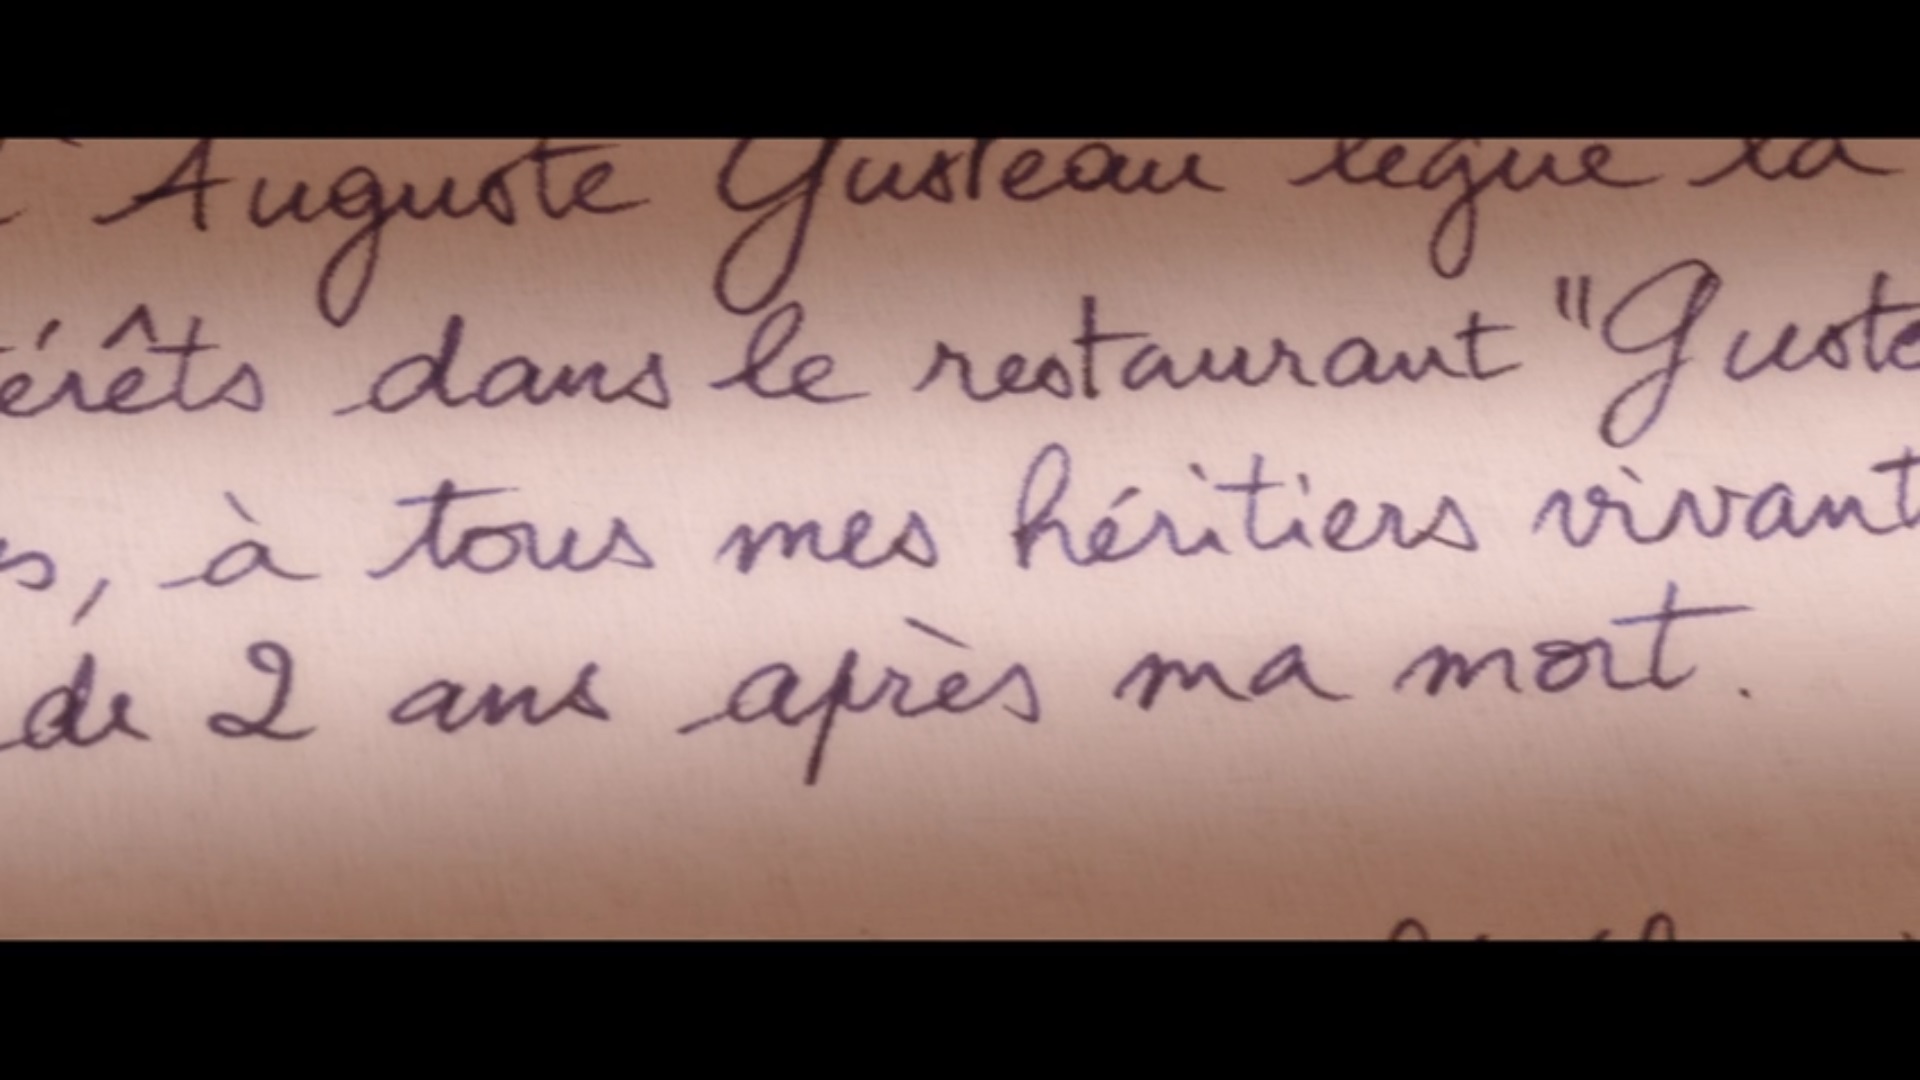 Auguste Gusteau lègue la
érêts dans le restaurant "Guste
s, à tous mes héritiers vivant
de 2 ans après ma mort.